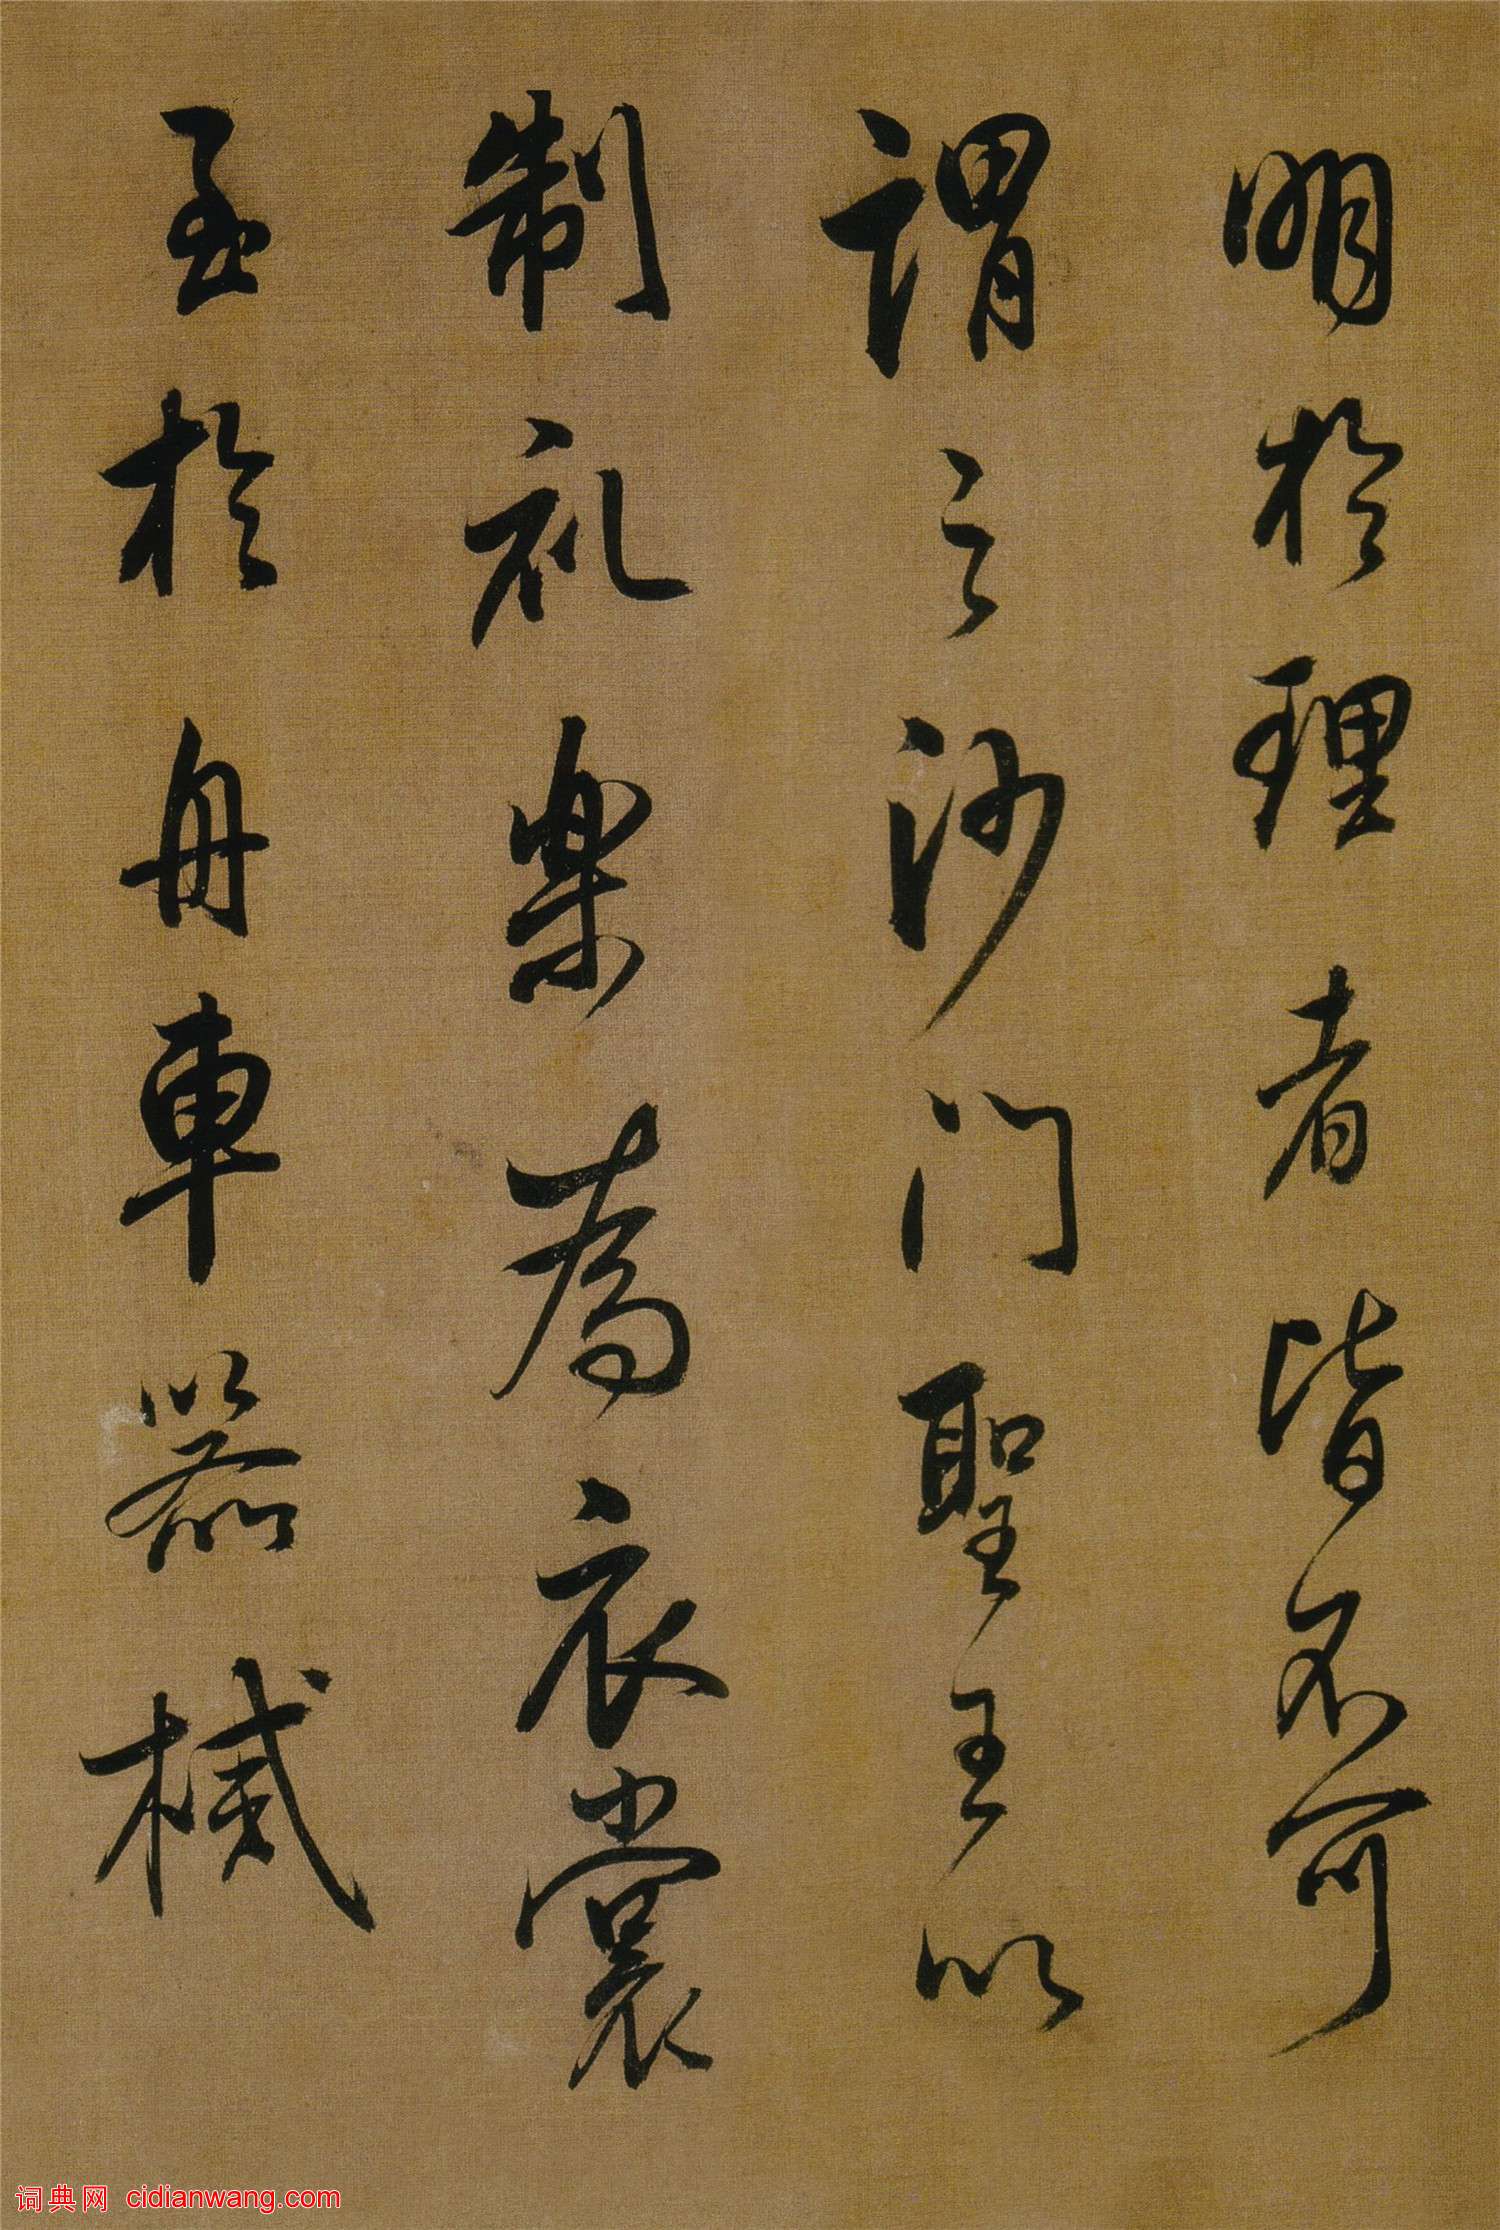 明於理者皆不可
謂之沙门聖王以
制礼樂為衣裳
至於舟車器械
词典网 cidianwang.com